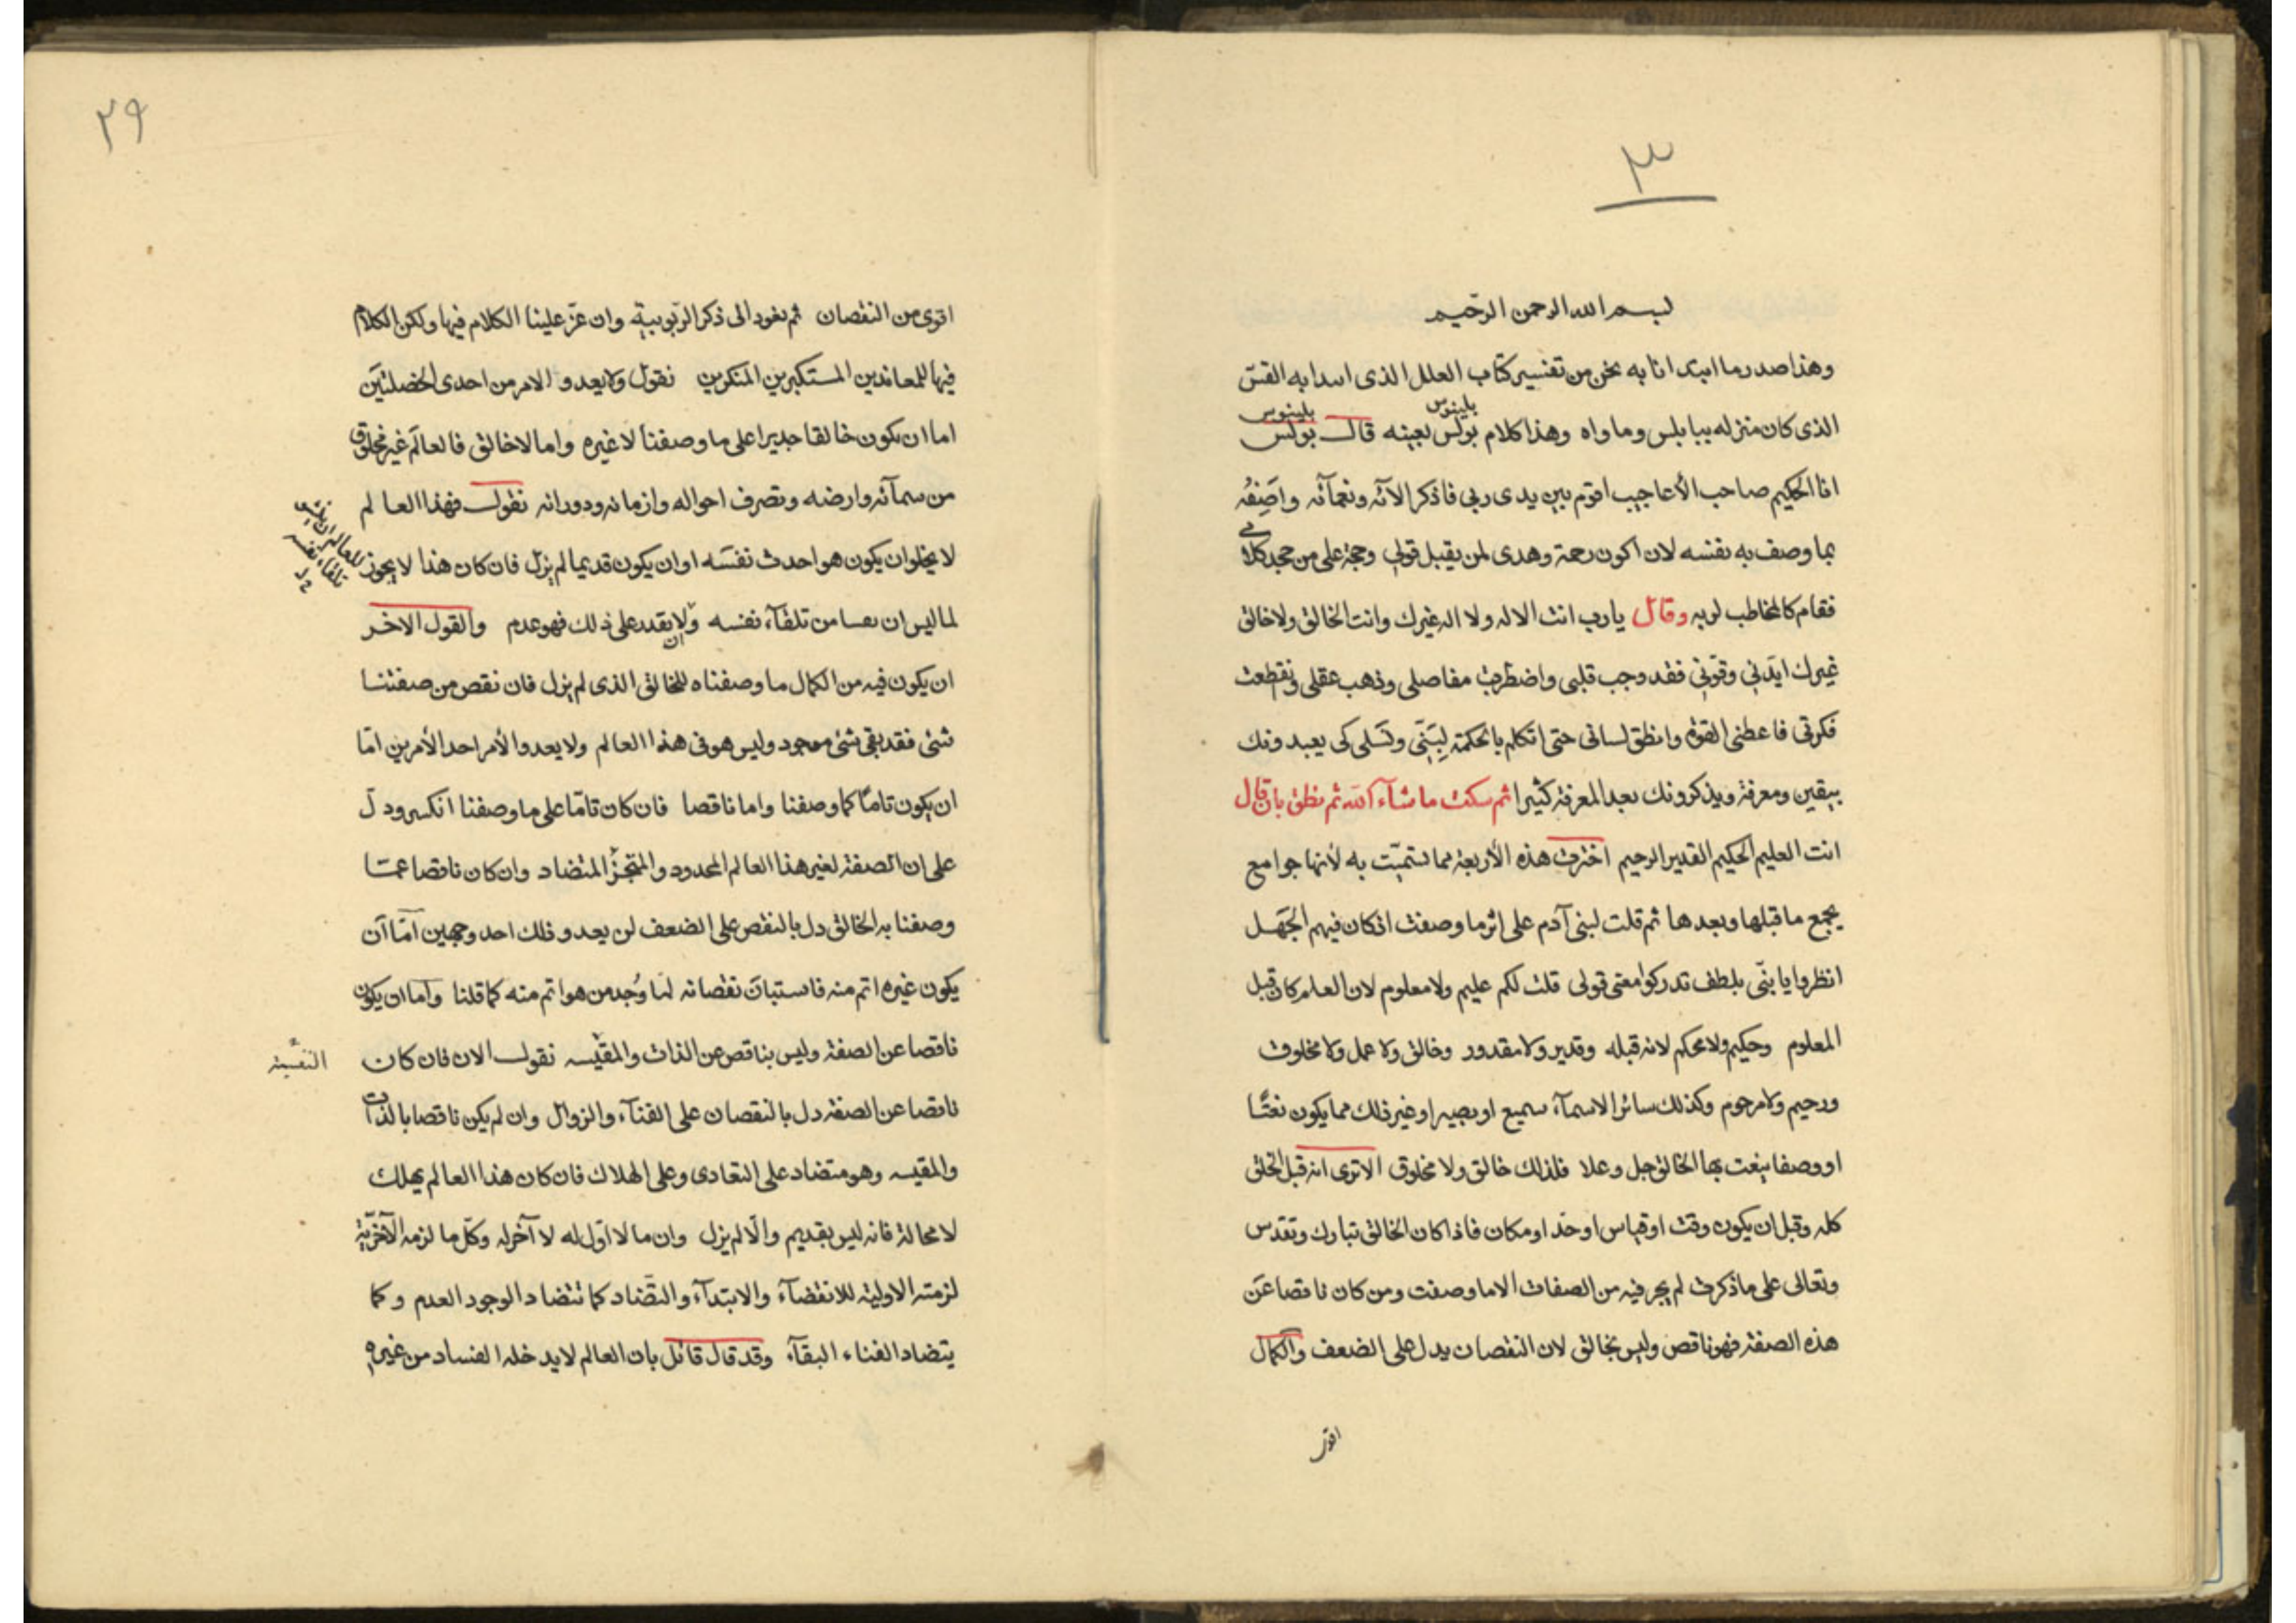 ٣
بسم الله الرحمن الرحيم
وهذا صدر ما ابتدانا به نحن من تفسير كتاب العلل الذى ابدا به القس
بلينوس بلينوس
الذى كان منزله ببابلس وماواه وهذا كلام بولس بعينه قال بولس
انا الحكيم صاحب الأعاجيب اقوم بين يدى ربى فاذكر الآئه ونعمآئه واصفُه
بما وصف به نفسه لان اكون رحمة وهدى لمن يقبل قولى وحجة على من جحد كلامى
فقام كالمخاطب لربه وقال يارب انت الاله ولا اله غيرك وانت الخالق ولا خالق
غيرك ايّدنى وقوّنى فقد وجب قلبى واضطربت مفاصلى وذهب عقلى وتقطعت
فكرتى فاعطنى القوة وانطق لسانى حتى اتكلم بالحكمة لبَنىّ ونَسلى كى يعبدونك
بيقين ومعرفة ويذكرونك بعد المعرفة كثيرا ثم سكت ما شآء الله ثم نطق بان قال
انت العليم الحكيم القدير الرحيم اخترت هذه الأربعة مما تسمّيت به لأنها جوامع
يجمع ما قبلها وبعدها ثم قلت لبنى آدم على اثر ما وصفت اذ كان فيهم الجَهل
انظروا يا بنّى بلطف تدركوا معنى قولى قلت لكم عليم ولا معلوم لان العلم كان قبل
المعلوم وحكيم ولا محكم لانه قبله وقدير ولا مقدور وخالق ولا عمل ولا مخلوق
ورحيم ولا مرحوم وكذلك سائر الاسمآء سميع او بصير او غير ذلك مما يكون نعتًا
او وصفا ينعت بها الخالق جل وعلا فلذلك خالق ولا مخلوق الا ترى انه قبل الخلق
كله وقبل ان يكون وقت او قياس او حّد او مكان فاذا كان الخالق تبارك وتقدس
وتعالى على ما ذكرت لم يجر فيه من الصفات الا ما وصفت ومن كان ناقصا عَن
هذه الصفة فهو ناقص وليس بخالق لان النقصان يدل على الضعف والكمال
اقوى
٢٩
اقوى من النقصان ثم نعود الى ذكر الرّبوبية وان عزّ علينا الكلام فيها ولكن الكلام
فيها للمعاندين المستكبرين المنكرين نقول ولا يعدو الامر من احدى الخصلتين
اما ان يكون خالقا جديرا على ما وصفنا لا غيره واما لا خالق فالعالَم غير مخلوق
من سمآئه وارضه وتصرف احواله وازمانه ودورانه نقول فهذا العالم
لا يخلو ان يكون هو احدث نفسَه او ان يكون قديما لم يزل فان كان هذا لا يجوز
للعالم ان
تلقاء نفسه
لما ليس ان من تلقآء نفسه ولا يقدر على ذلك فهو عدم والقول الاخر
ان
ان يكون فيه من الكمال ما وصفناه للخالق الذى لم يزل فان نقص من صفتنا
شئى فقد بقى شئى موجود وليس هو فى هذا العالم ولا يعدوا الأمر احد الأمرين امّا
ان يكون تامًا كما وصفنا واما ناقصا فان كان تامّا على ما وصفنا انكسر ودلّ
على ان الصفة لغير هذا العالم المحدود والمتجزّأ المتضاد وان كان ناقصا عمّا
وصفنا به الخالق دل بالنقص على الضعف لن يعدو ذلك احد وجهين امّا ان
يكون غيره اتم منه فاستبان نقصانه لما وُجد من هو اتم منه كما قلنا واما ان يكون
ناقصا عن الصفة وليس بناقص عن الذات والمقيسه نقول الان فان كان
ناقصا عن الصفة دل بالنقصان على الفنآء والزوال وان لم يكن ناقصا بالذات
والمقيسه وهو متضاد على التعادى وعلى الهلاك فان كان هذا العالم يهلك
لا محالة فانه ليس بقديم والّا لم يزل وان ما لا اوّل له لا آخر له وكلّ ما لزمه الآخريّة
لزمته الاولية للانقضآء والابتدآء والتضاد كما تتضاد الوجود العدم وكما
يتضاد الفناء البقآء وقد قال قائل بان العالم لا يدخله الفساد من غيره